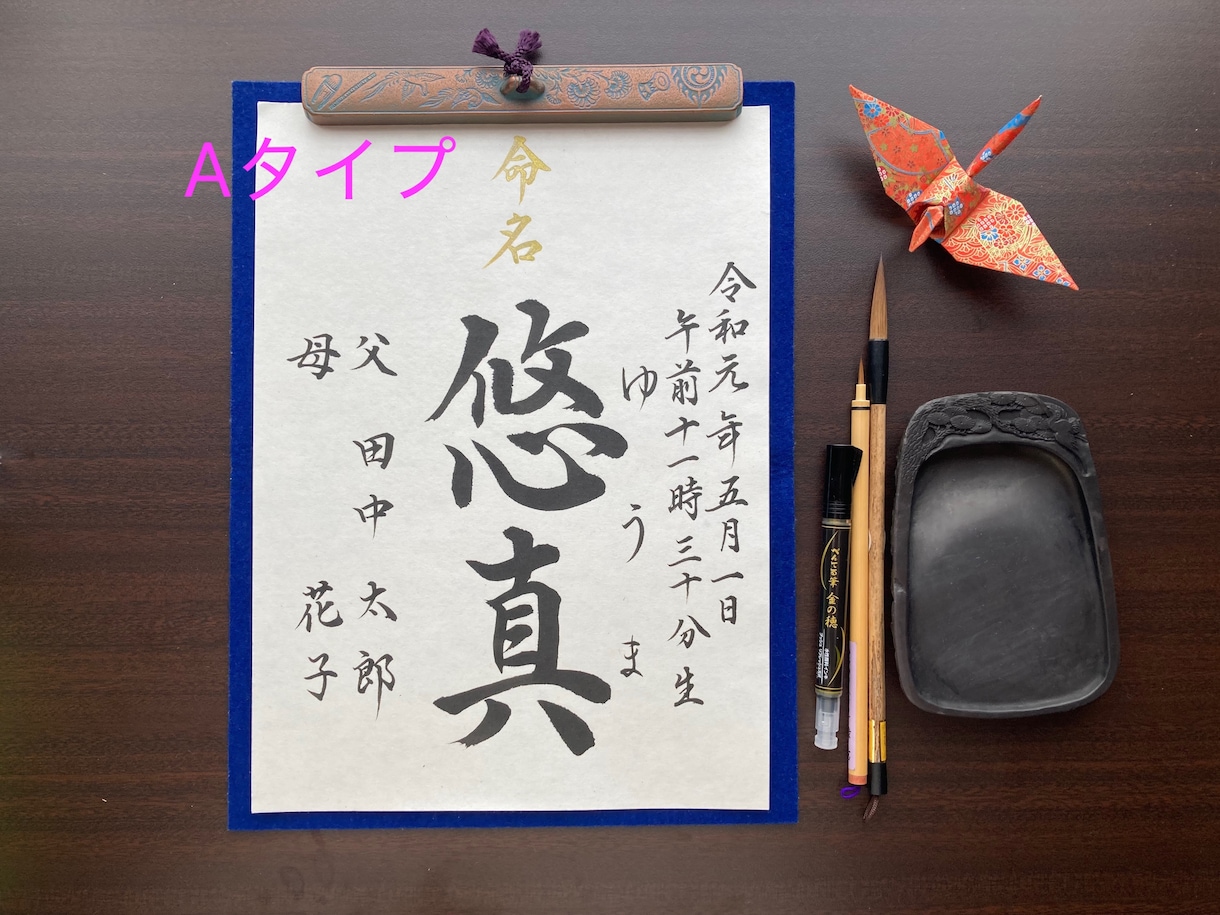 Aタイプ
命名
令和元年五月一日
午前十一時三十分生
ゆうま
悠真
父 田中 太郎
母 花子
ぺんてる筆 金の穂